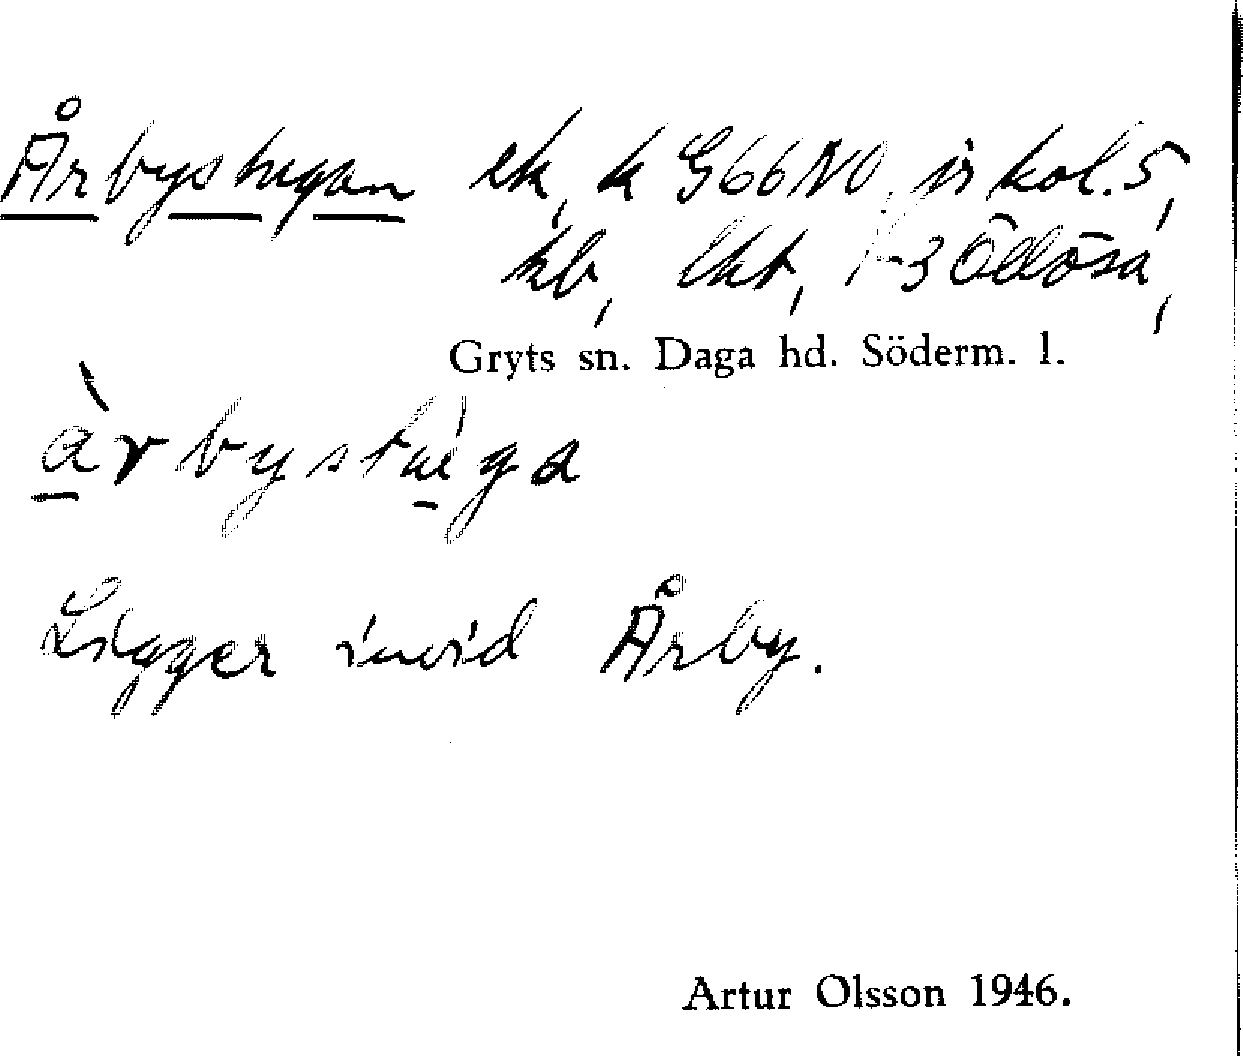 Årbystugan ek, k G66NO, jr kol. 5,
kb, lht, 1-3 Ödlösa,
Gryts sn. Daga hd. Söderm. l.
Ligger invid Årby.
Artur Olsson 1946.